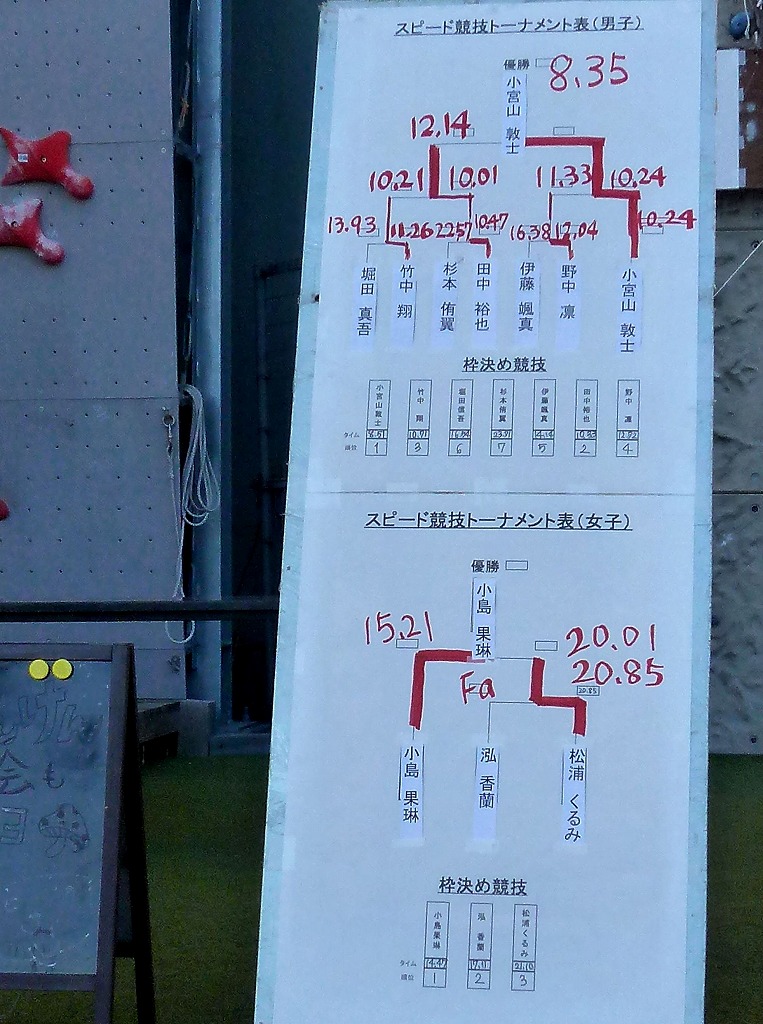 スピード競技トーナメント表(男子)
優勝 8.35
小宮山 敦士
12.14
10.21 10.01 11.33 10.24
13.93 11.26 22.57 10.47 16.38 12.04 10.24
堀田 真吾 竹中 翔 杉本 侑翼 田中 裕也 伊藤 颯真 野中 凛 小宮山 敦士
枠決め競技
小宮山敦士 竹中 翔 堀田真吾 杉本侑翼 伊藤颯真 田中裕也 野中 凛
タイム
順位 1 3 6 7 5 2 4
スピード競技トーナメント表(女子)
優勝
小島 果琳
15.21 20.01
Fa 20.85
20.85
小島 果琳 泓 香蘭 松浦 くるみ
枠決め競技
小島果琳 泓 香蘭 松浦くるみ
タイム
順位 1 2 3